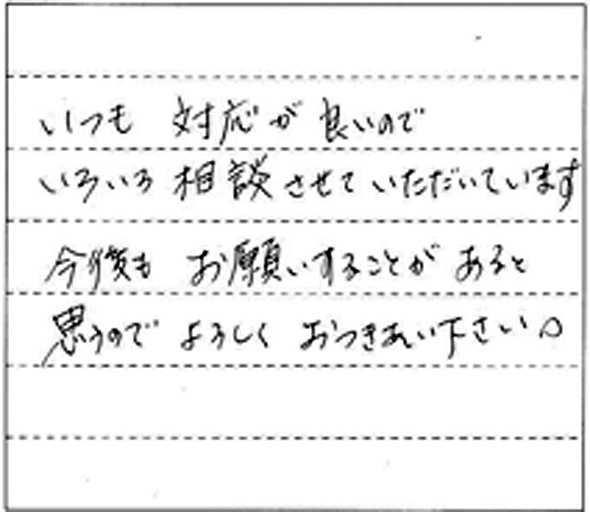 いつも 対応が 良いので
いろいろ 相談 させて いただいています
今後も お願いすることが あると
思うので よろしく おつきあい下さい。